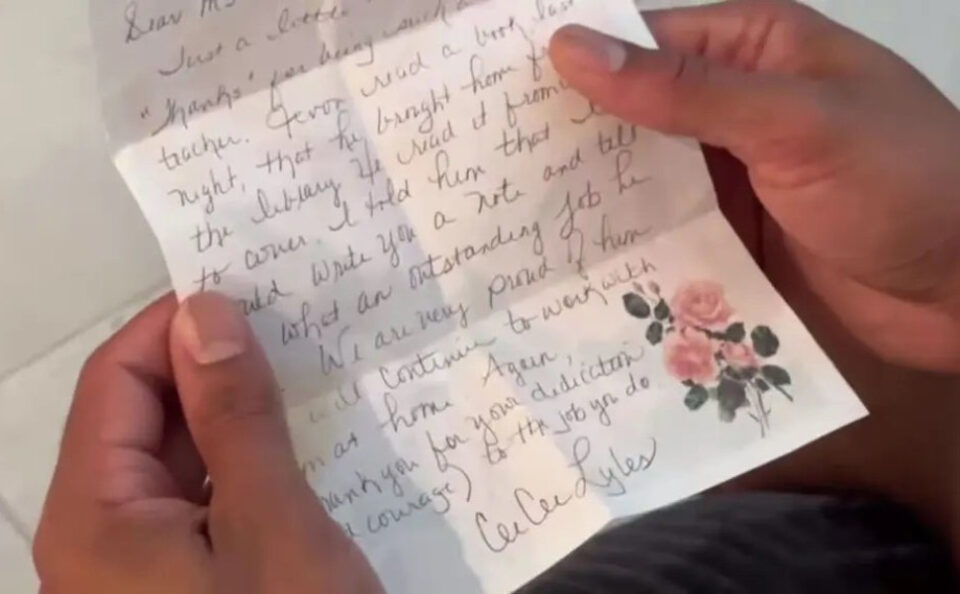 Dear Ms
Just a little
"Thanks" for being such a
teacher. Jevon read a book last
night, that he brought home
the library. He read it from
to cover. I told him that I
would write you a note and tell
what an outstanding job he
We are very proud of him
will continue to work with
at home. Again,
thank you for your dedication
courage) to the job you do
CeeCee Lyles